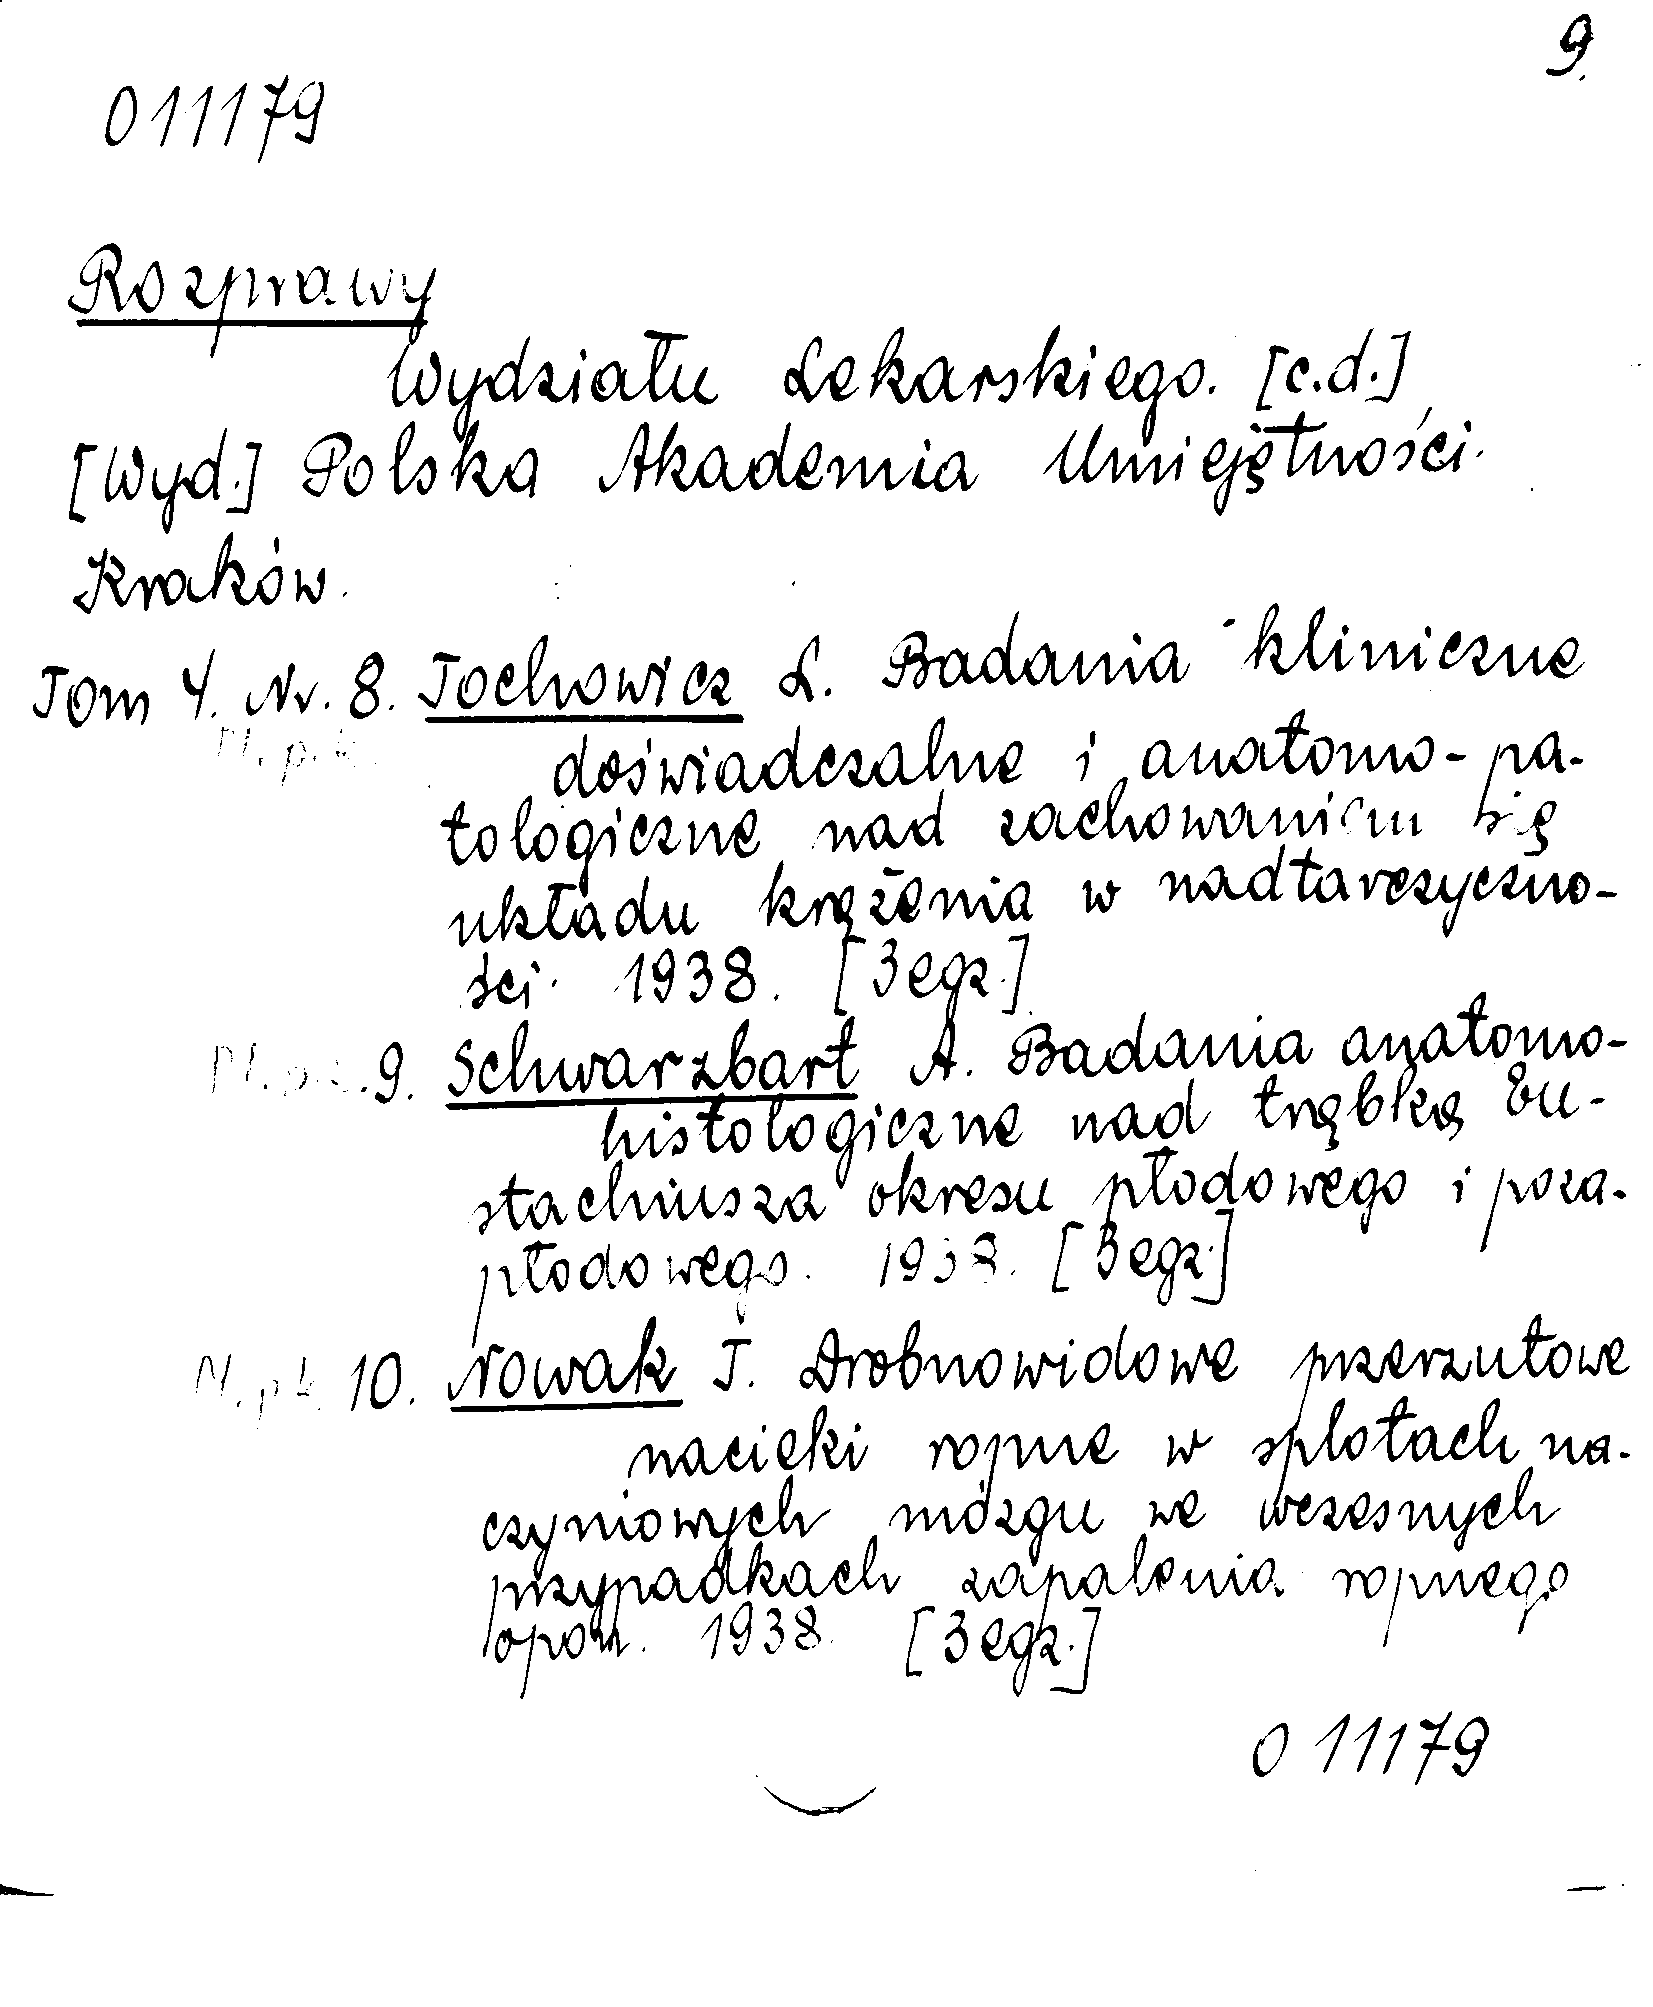 9.
011179
Rozprawy
Wydziału Lekarskiego. [c.d.]
[Wyd.] Polska Akademia Umiejętności.
Kraków.
Tom 4. Nr. 8. Tochowicz L. Badania kliniczne
doświadczalne i anatomo-pa-
tologiczne nad zachowaniem się
układu krążenia w nadtarczyczno-
ści. 1938. [3 egz.]
9. Schwarzbart A. Badania anatomo-
histologiczne nad trąbką Eu-
stachiusza okresu płodowego i poza-
płodowego. 1938. [3 egz.]
10. Nowak J. Drobnowidowe przerzutowe
nacieki ropne w splotach na-
czyniowych mózgu we wczesnych
przypadkach zapalenia ropnego
opon. 1938. [3 egz.]
011179